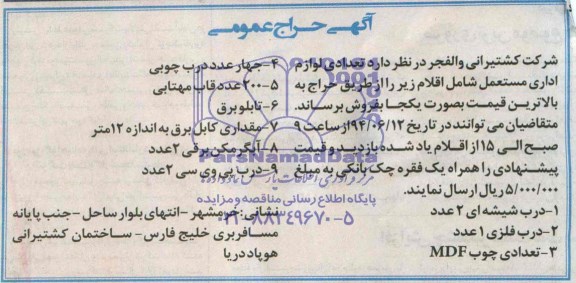 آگهی حراج عمومی
شرکت کشتیرانی والفجر در نظر دارد تعدادی لوازم
اداری مستعمل شامل اقلام زیر را از طریق حراج به
بالاترین قیمت بصورت یکجا بفروش برساند.
متقاضیان می توانند در تاریخ ۹۴/۰۶/۱۲ از ساعت ۹
صبح الی ۱۵ از اقلام یاد شده بازدید و قیمت
پیشنهادی را همراه یک فقره چک بانکی به مبلغ
۵/۰۰۰/۰۰۰ ریال ارسال نمایند.
۱-درب شیشه ای ۲ عدد
۲-درب فلزی ۱ عدد
۳-تعدادی چوب MDF
۴-چهار عدد درب چوبی
۵-۲۰۰ عدد قاب مهتابی
۶-تابلو برق
۷-مقداری کابل برق به اندازه ۱۲متر
۸-آبگرمکن برقی ۲عدد
۹-درب پی وی سی ۲عدد
نشانی: خرمشهر -انتهای بلوار ساحل -جنب پایانه
مسافربری خلیج فارس- ساختمان کشتیرانی
هوپاد دریا
ParsNamadData
پایگاه اطلاع رسانی مناقصه و مزایده
۰۲۱-۸۸۳۴۹۶۷۰-۵